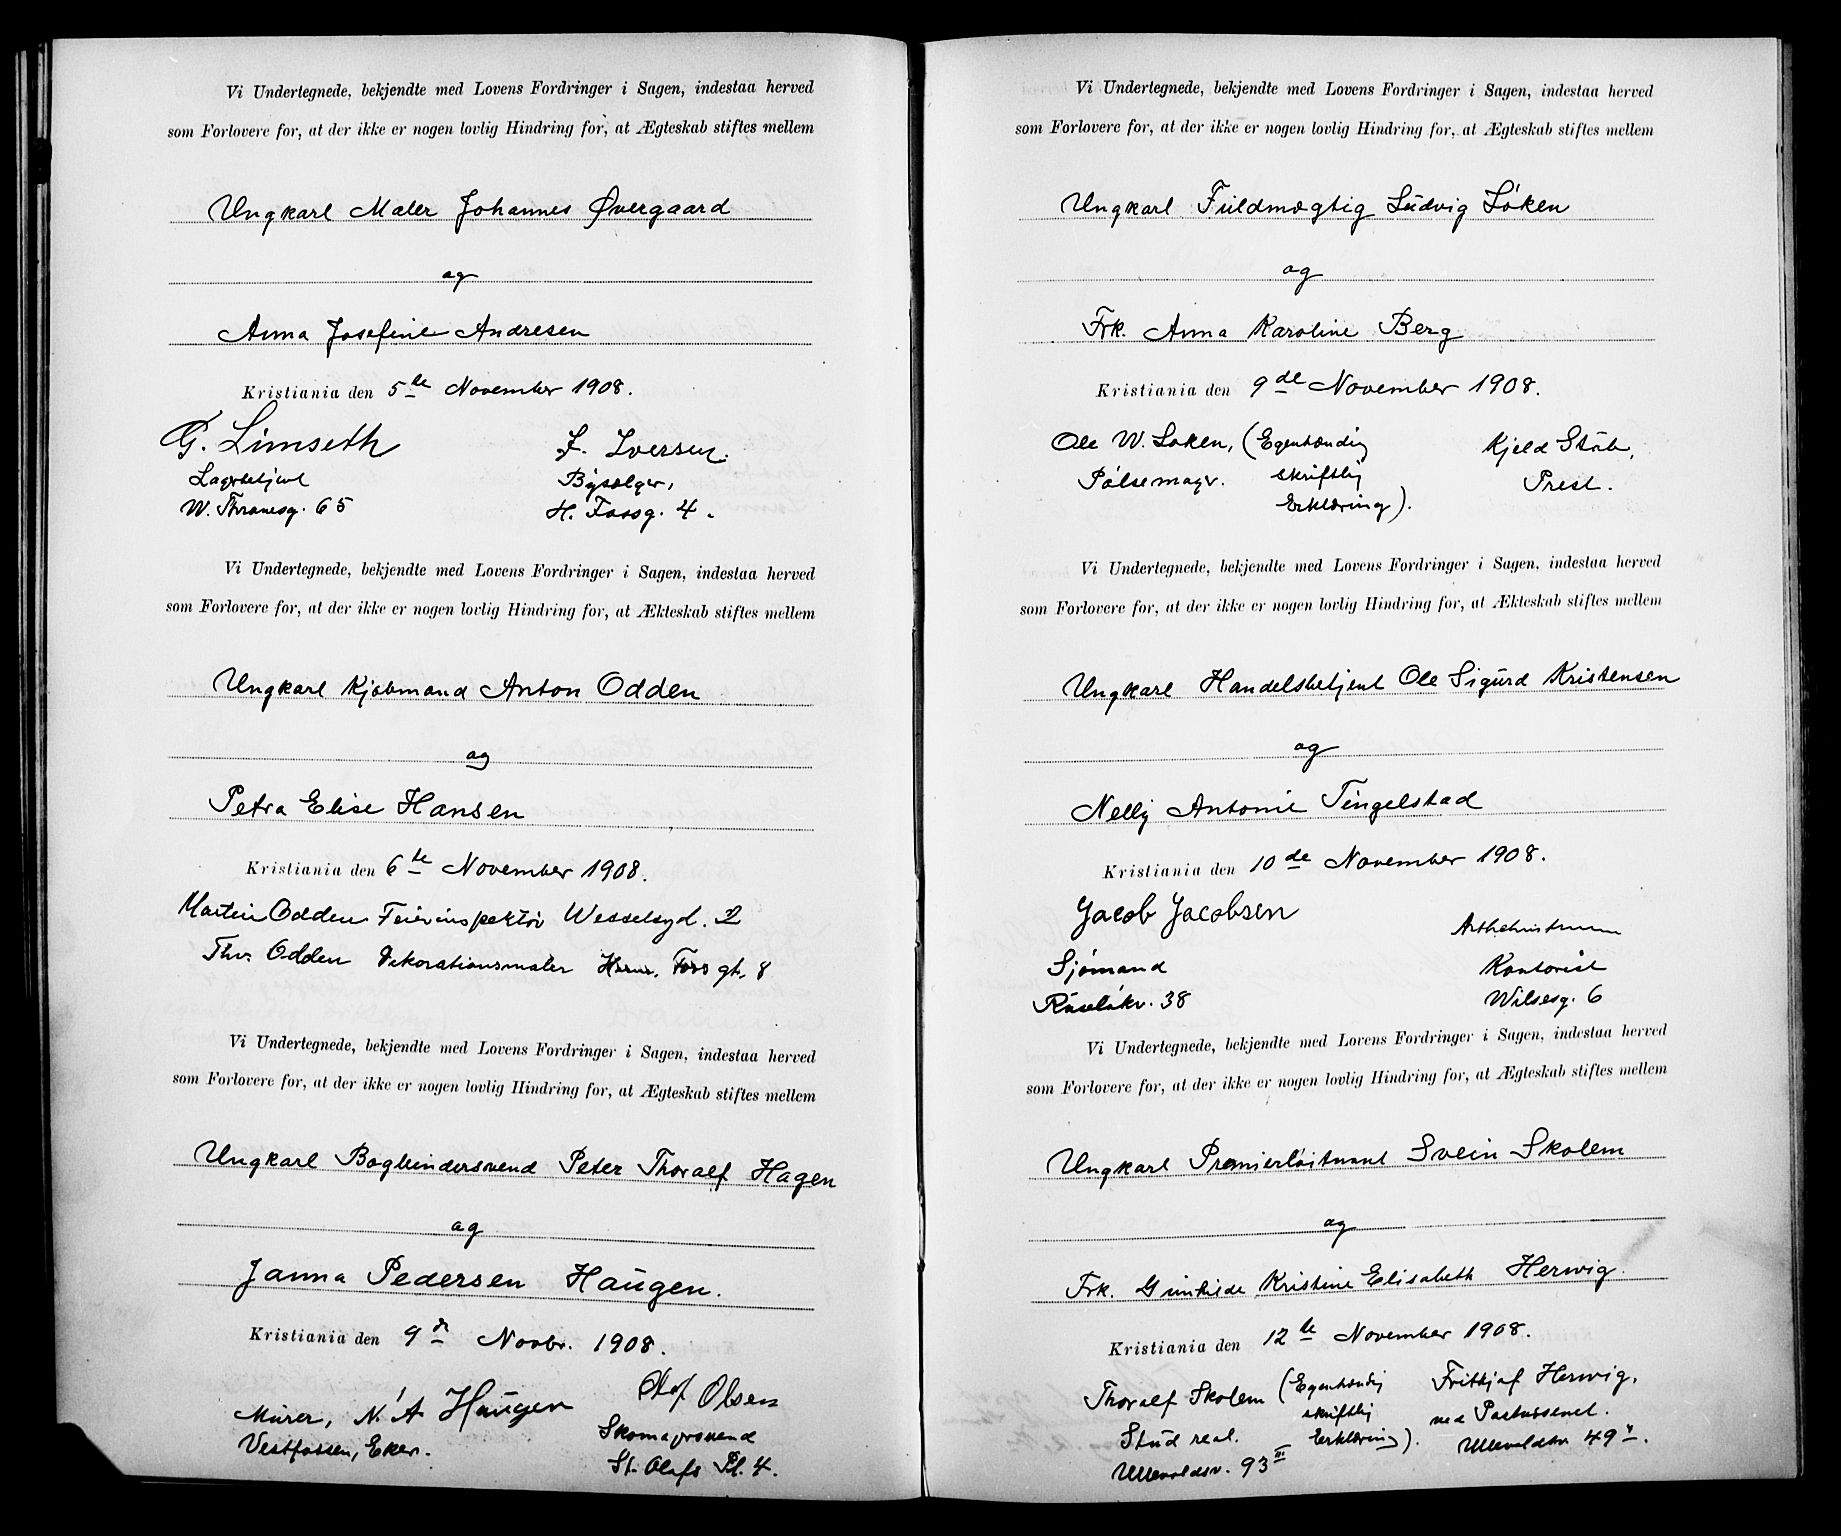 Vi Undertegnede, bekjendte med Lovens Fordringer i Sagen, indestaa herved
som Forlovere for, at der ikke er nogen lovlig Hindring for, at Ægteskab stiftes mellem
Ungkarl Maler Johannes Øvergaard
og
Anna Josefine Andresen
Kristiania den 5te November 1908.
G. Limseth
Lagerbetjent
W. Thranesg. 65
I. Iversen.
Bysælger,
H. Fossg. 4.
Vi Undertegnede, bekjendte med Lovens Fordringer i Sagen, indestaa herved
som Forlovere for, at der ikke er nogen lovlig Hindring for, at Ækteskab stiftes mellem
Ungkarl Kjøbmand Anton Odden
og
Petra Elise Hansen
Kristiania den 6te November 1908.
Martin Odden Feierinspektør Wesselsgd. 2
Thv. Odden Dekorationsmaler Herm. Foss gt. 8
Vi Undertegnede, bekjendte med Lovens Fordringer i Sagen, indestaa herved
som Forlovere for, at der ikke er nogen lovlig Hindring for, at Ægteskab stiftes mellem
Ungkarl Bogbindersvend Peter Thoralf Hagen
og
Janna Pedersen Haugen.
Kristiania den 9de Novbr. 1908.
Murer, N. A Haugen
Vestfossen, Eker.
Olaf Olsen
Skomagersvend
St. Olafs Pl. 4.
Vi Undertegnede, bekjendte med Lovens Fordringer i Sagen, indestaa herved
som Forlovere for, at der ikke er nogen lovlig Hindring for, at Ægteskab stiftes mellem
Ungkarl Fuldmægtig Ludvig Løken
og
Frk. Anna Karoline Berg
Kristiania den 9de November 1908.
Ole W. Løken, (Egenhændig
Pølsemagr. skriftlig
Erklæring).
Kjeld Stub,
Prest.
Vi Undertegnede, bekjendte med Lovens Fordringer i Sagen, indestaa herved
som Forlovere for, at der ikke er nogen lovlig Hindring for, at Ækteskab stiftes mellem
Ungkarl Handelsbetjent Ole Sigurd Kristensen
og
Nelly Antonie Tingelstad
Kristiania den 10de November 1908.
Jacob Jacobsen
Sjømand
Ruseløkv. 38
Kontorist
Wilsesg. 6
Vi Undertegnede, bekjendte med Lovens Fordringer i Sagen, indestaa herved
som Forlovere for, at der ikke er nogen lovlig Hindring for, at Ægteskab stiftes mellem
Ungkarl Premierløitnant Svein Skolem
og
Frk. Gunhilde Kristine Elisabeth Herwig.
Kristiania den 12te November 1908.
Thoralf Skolem (Egenhændig
Stud real. skriftlig
Ullevoldsv. 93 III Erklæring).
Frithjof Herwig,
ved Postvæsenet.
Ullevoldsv. 49